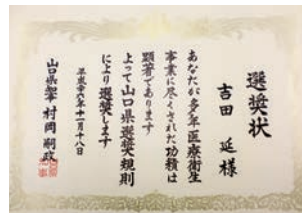 選奨状
吉田 延様
あなたが多年医療衛生
事業に尽くされた功績は
顕著であります
よって山口県選奨規則
により選奨します
平成二十八年十一月十八日
山口県知事 村岡嗣政